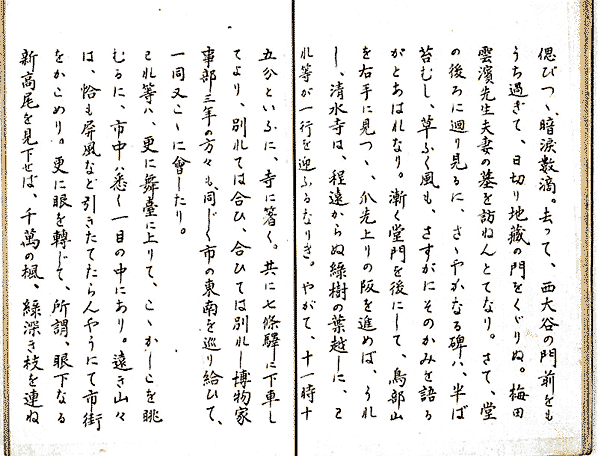 偲びつゝ、暗涙数滴。去って、西大谷の門前をも
うち過ぎて、日切り地蔵の門をくぐりぬ。梅田
雲濱先生夫妻の墓を訪ねんとてなり。さて、堂
の後ろに廻り見るに、さゝやかなる碑ハ、半ば
苔むし、草ふく風も、さすがにそのかみを語る
がとあはれなり。漸く堂門を後にして、鳥部山
を右手に見つゝ、爪先上りの阪を進めば、うれ
し、清水寺は、程遠からぬ緑樹の葉越しに、こ
れ等が一行を迎ふるなりき。やがて、十一時十
五分といふに、寺に着く。共に七條驛に下車し
てより、別れては合ひ、合ひては別れし博物家
事部三年の方々も、同じく市の東南を巡り給ひて、
一同又こゝに會したり。
これ等ハ、更に舞臺に上りて、こゝかしこを眺
むるに、市中ハ悉く一目の中にあり。遠き山々
は、恰も屏風など引きたてたらんやうにて市街
をかこめり。更に眼を轉じて、所謂、眼下なる
新高尾を見下せば、千萬の楓、緑深き枝を連ね